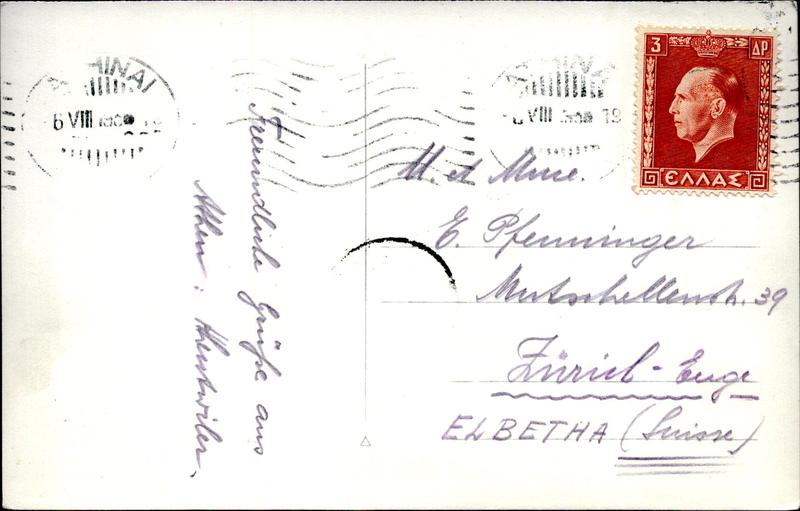 ATHINAI
6 VIII
19
VIII
19
3 ΔΡ
ΕΛΛΑΣ
Freundliche Grüße aus
Athen:
M. et Mme.
E. Pfenninger
Mutschellenstr. 39
Zürich-Enge
ELBETHA (Suisse)